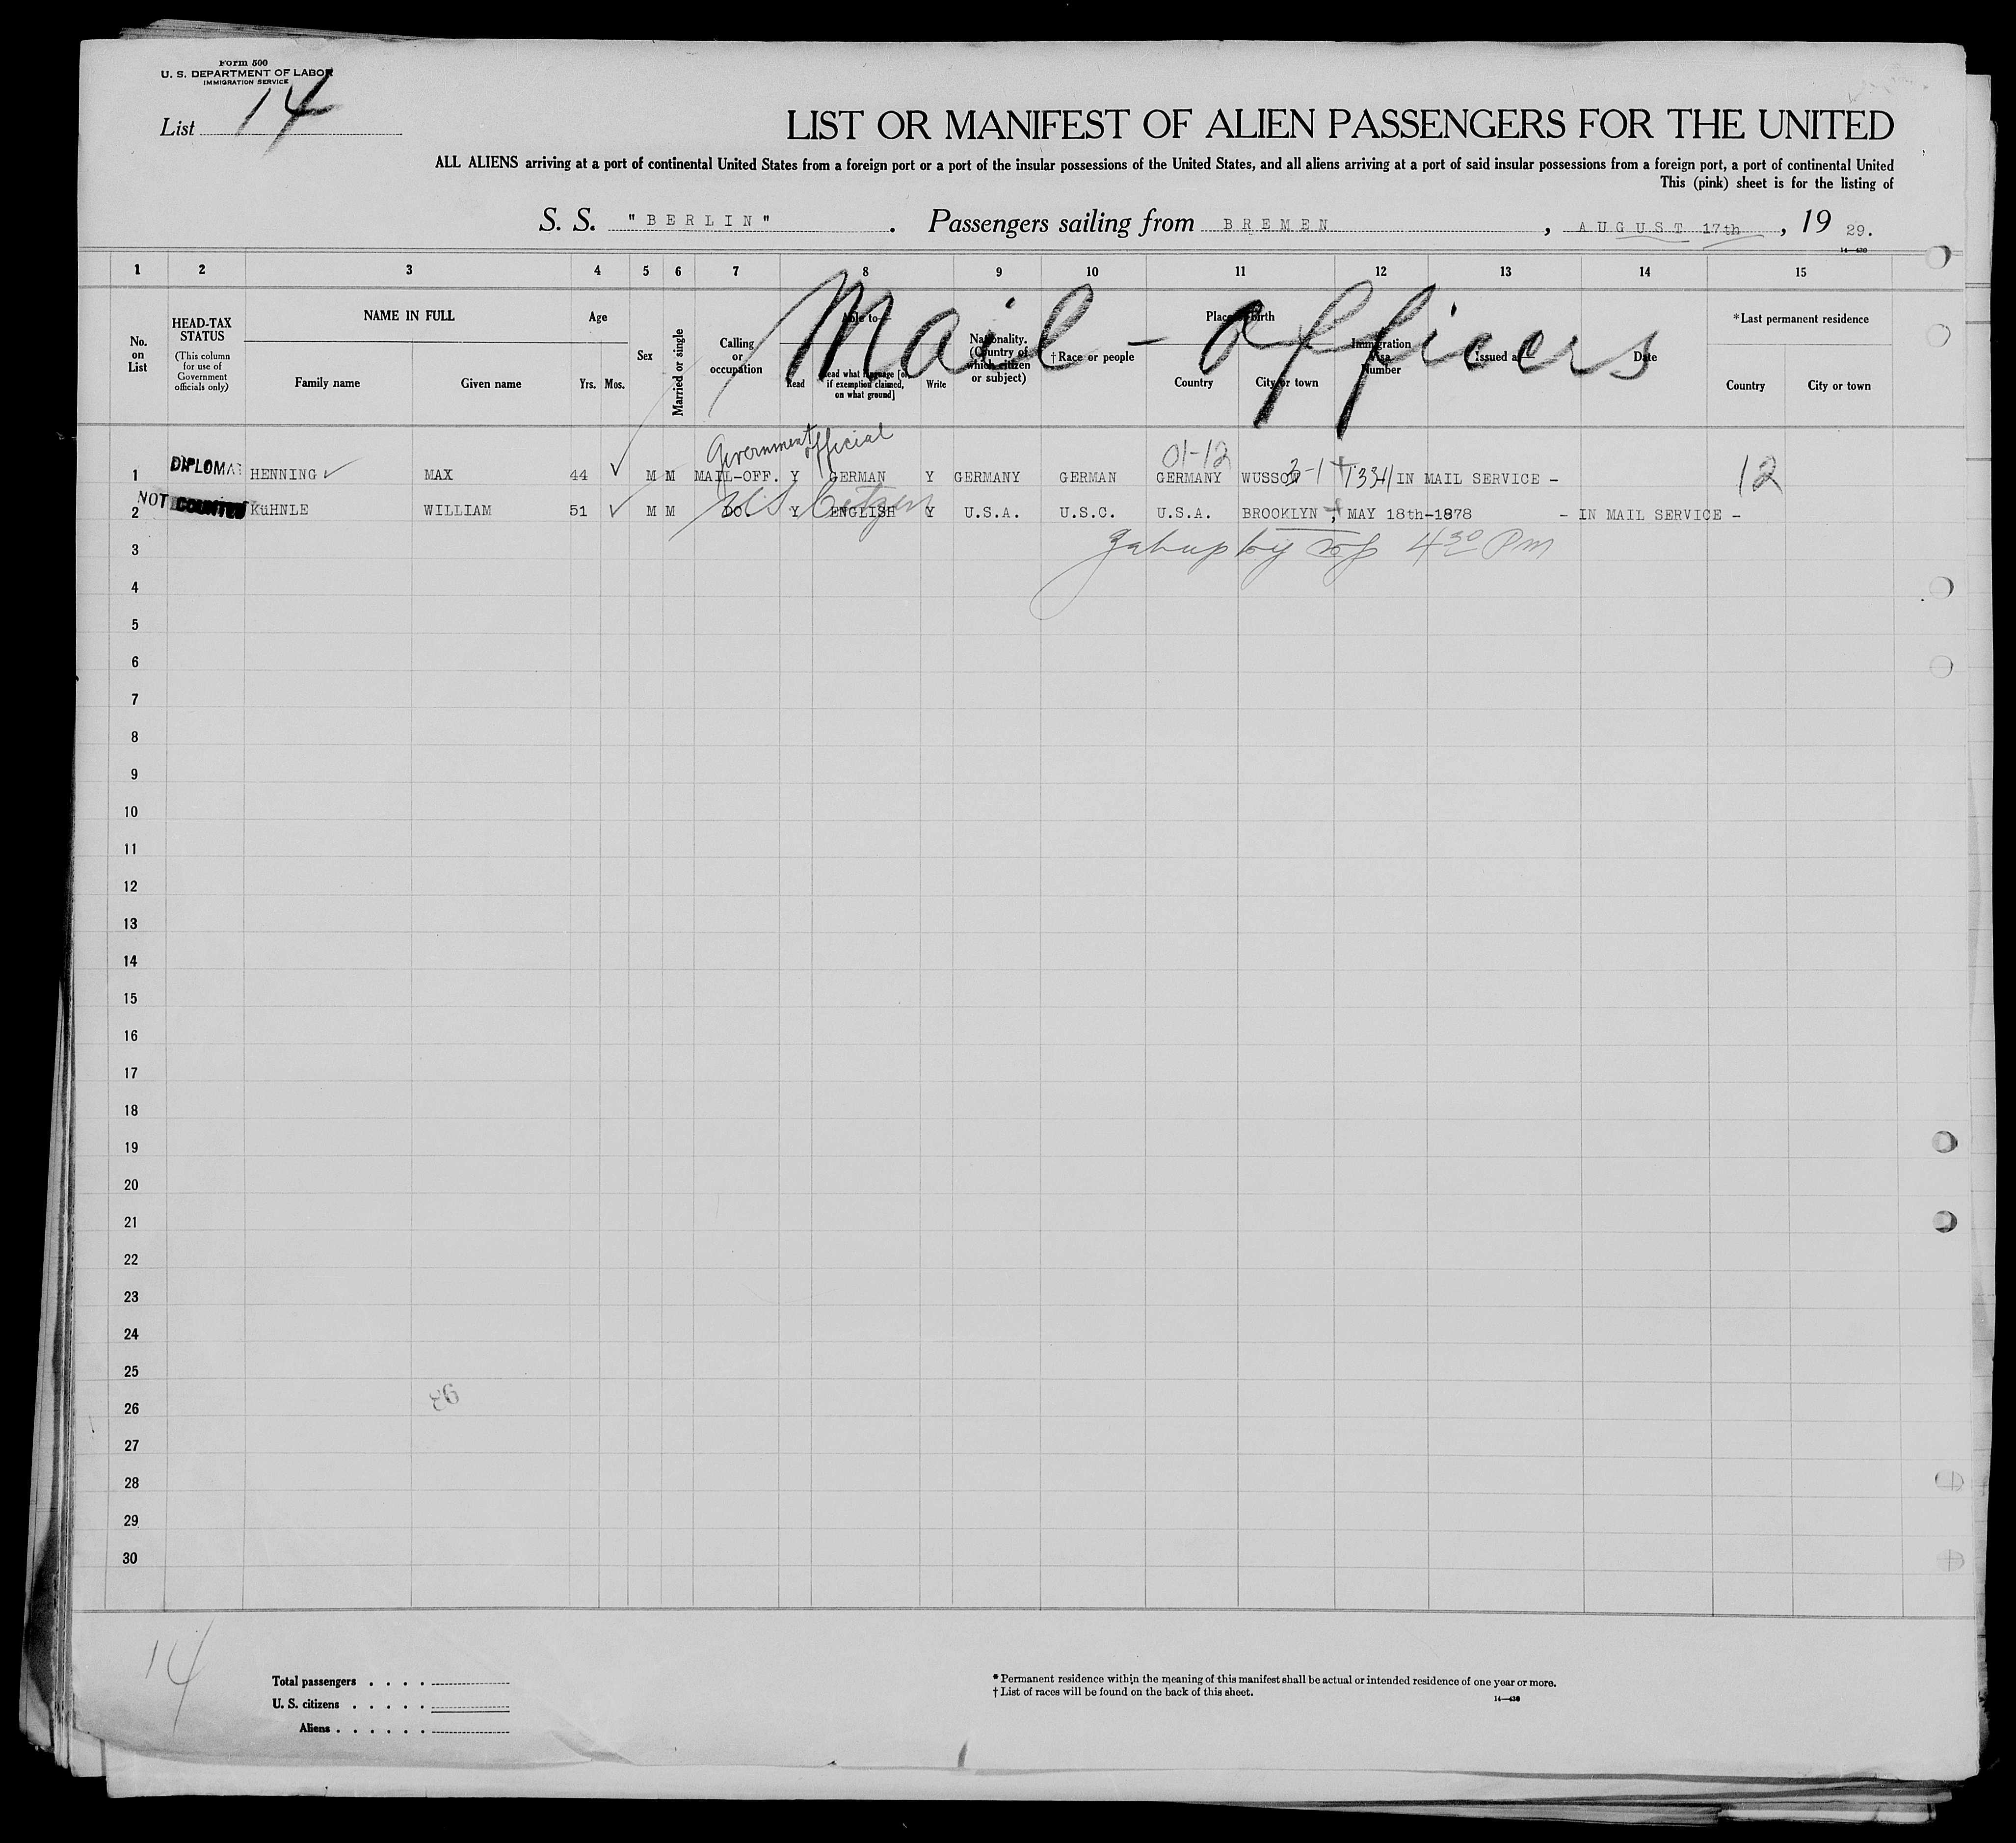 Form 500
U. S. DEPARTMENT OF LABOR
IMMIGRATION SERVICE
List 14
LIST OR MANIFEST OF ALIEN PASSENGERS FOR THE UNITED
ALL ALIENS arriving at a port of continental United States from a foreign port or a port of the insular possessions of the United States, and all aliens arriving at a port of said insular possessions from a foreign port, a port of continental United
This (pink) sheet is for the listing of
S. S. "BERLIN". Passengers sailing from BREMEN, AUGUST 17th, 19 29.
14—430
1 2 3 4 5 6 7 8 9 10 11 12 13 14 15
Mail - Officers
No. on List
HEAD-TAX STATUS
(This column for use of Government officials only)
NAME IN FULL
Family name Given name
Age
Yrs. Mos.
Sex
Married or single
Calling or occupation
Able to—
Read Read what language [or, if exemption claimed, on what ground] Write
Nationality. (Country of which citizen or subject)
†Race or people
Place of birth
Country City or town
Immigration Visa Number
Issued at—
Date
*Last permanent residence
Country City or town
Government official 01-12
1 DIPLOMAT HENNING MAX 44 M M MAIL-OFF. Y GERMAN Y GERMANY GERMAN GERMANY WUSSOW 3-1 IN MAIL SERVICE - 12
NOT COUNTED U.S. Citizen
2 KüHNLE WILLIAM 51 M M DO. Y ENGLISH Y U.S.A. U.S.C. U.S.A. BROOKLYN, MAY 18th-1878 - IN MAIL SERVICE -
3 by 4 30 Pm
4
5
6
7
8
9
10
11
12
13
14
15
16
17
18
19
20
21
22
23
24
25
26
27
28
29
30
14
Total passengers . . . .
U. S. citizens . . . . .
Aliens . . . . . .
* Permanent residence within the meaning of this manifest shall be actual or intended residence of one year or more.
† List of races will be found on the back of this sheet.
14—430